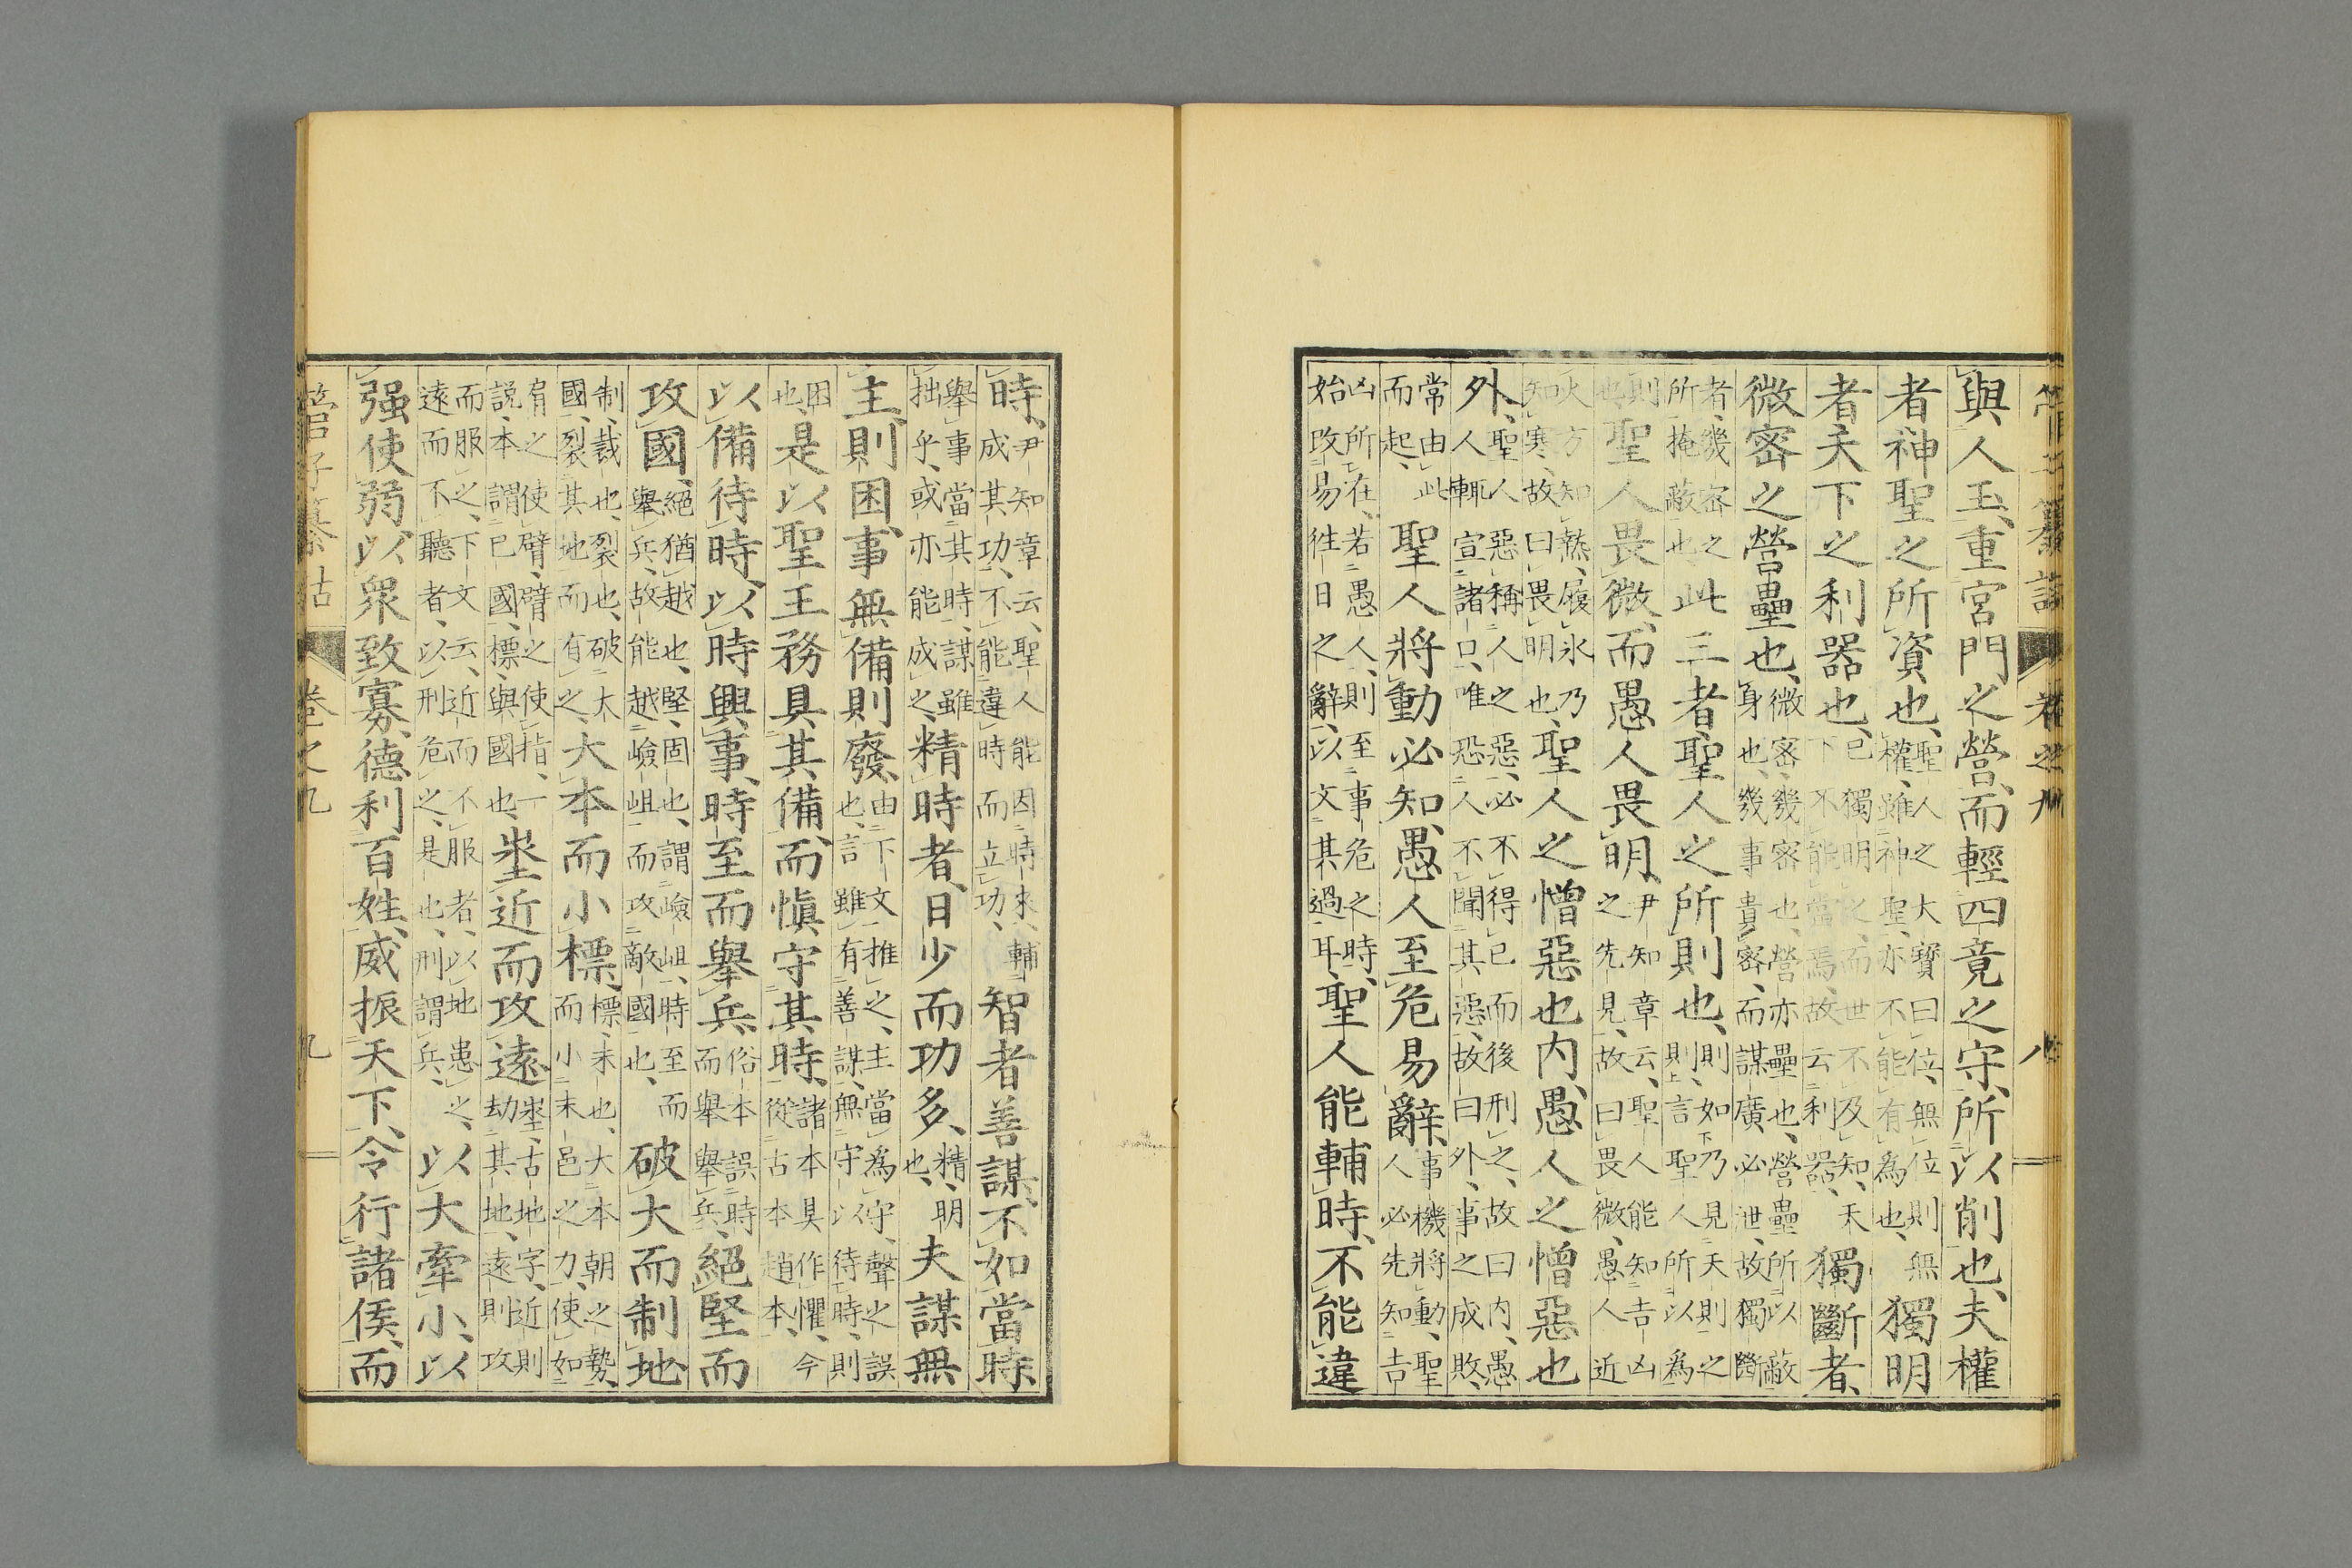 管子纂詁 卷之九 八
與人玉、重宮門之營、而輕四竟之守、所以削也、夫權
者神聖之所資也、聖人之大寶曰位、無位則無權、雖神聖、亦不能有爲也、獨明
者天下之利器也、已獨明之、而世不及知、天下不能當焉、故云利器、獨斷者、
微密之營壘也、微密、幾密也、營亦壘也、營壘所以蔽身也、幾事貴密、而謀廣必泄、故獨斷
者、幾密之所掩蔽也、此三者、聖人之所則也、則、如乃見天則之則、言聖人所以爲
則也、聖人畏微、而愚人畏明、尹知章云、聖人能知吉凶之先見、故曰畏微、愚人近
火方知熱、履氷乃知寒、故曰畏明也、聖人之憎惡也內、愚人之憎惡也
外、聖人惡稱人之惡、必不得已而後刑之、故曰內、愚人輒宣諸口、唯恐人不聞其惡、故曰外、事之成敗、
常由此而起、聖人將動必知、愚人至危易辭、事機將動、聖人必先知吉
凶所在、若愚人、則至事危之時、始改易徃日之辭、以文其過耳、聖人能輔時、不能違
時、尹知章云、聖人能因時來、輔成其功、不能違時而立功、智者善謀、不如當時
舉事當其時、謀雖拙乎、或亦能成之、精時者、日少而功多、精、明也、夫謀無
主、則困、事無備則廢、由下文推之、主當爲守、聲之誤也、言雖有善謀、無守以待時、則
困也、是以聖王務具其備、而愼守其時、諸本具作懼、今從古本趙本、
以備待時、以時興事、時至而舉兵、俗本誤時而舉舉兵、絕堅而
攻國、絕猶越也、堅、固也、謂嶮岨、時至而舉兵、故能越嶮岨而攻敵國也、破大而制地
制、裁也、裂也、破大國、裂其地而有之、大本而小標、標、末也、大本朝之勢、而小末邑之力、使如
肩之使臂、臂之使指、一說、本謂己國、標、與國也、埊近而攻遠、埊、古地字、近則劫其地、遠則攻
而服之、下文云、近而不服者、以地患之、遠而不聽者、以刑危之、是也、刑謂兵、以大牽小、以
强使弱、以衆致寡、德利百姓、威振天下、令行諸侯、而
管子纂詁 卷之九 九